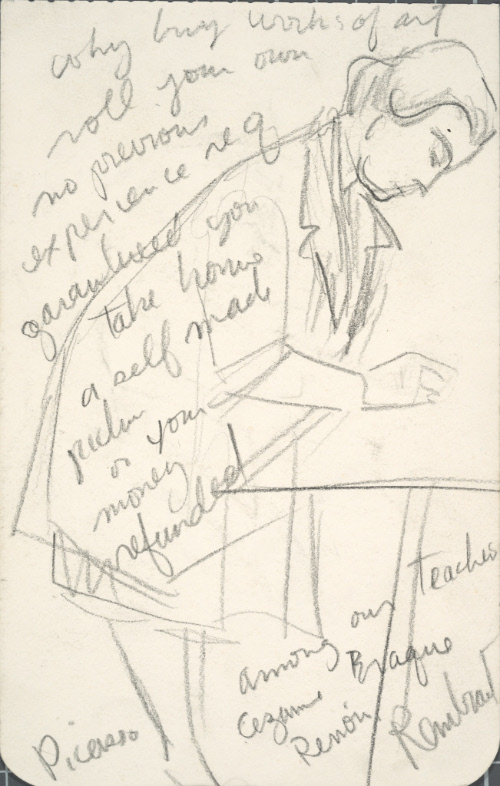 why buy works of art
roll your own
no previous
experience req
garanteed you
take home
a self made
pictur
or your
money
refunded
among our teaches
Cezanne Braque
Renoir Rembrat
Picasso